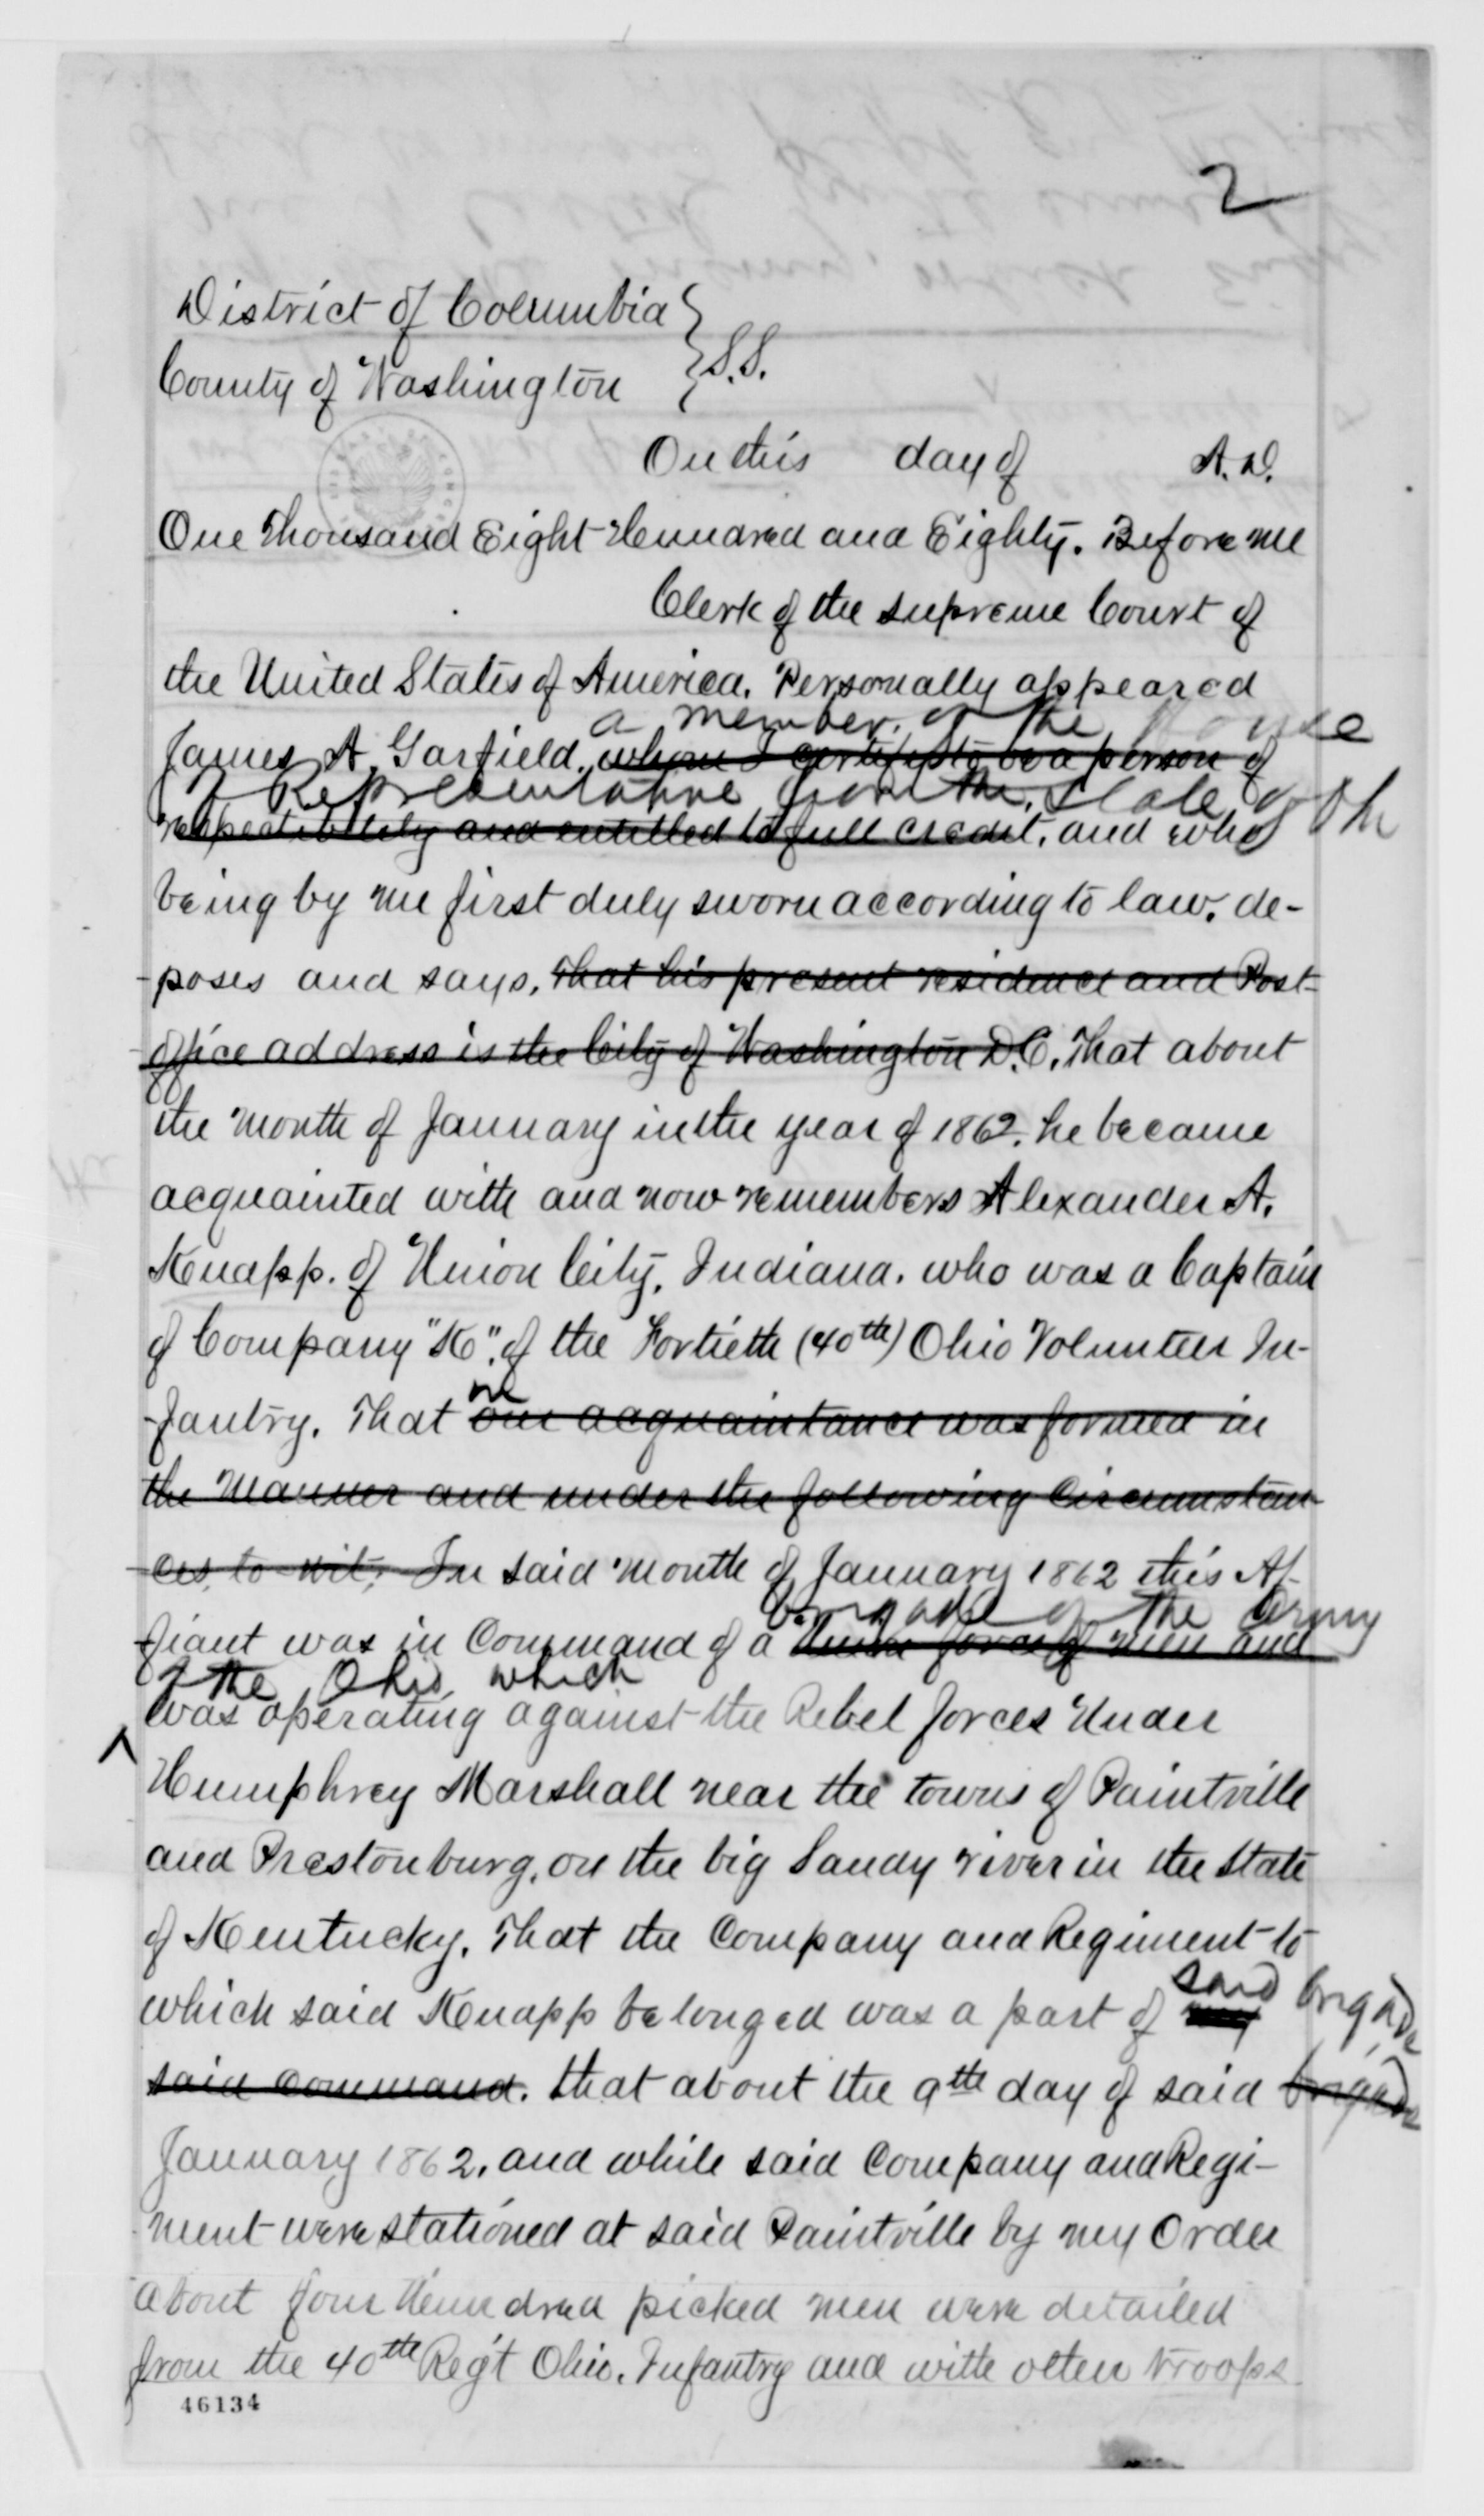 2
District of Columbia }
County of Washington } S.S.
On this day of A.D.
One Thousand Eight Hundred and Eighty. Before me
Clerk of the supreme Court of
the United States of America. Personally appeared
a member of the House
James A. Garfield. whom I certify to be a person of
of Representative from the State of Oh
respectibility and entitled to full credit, and who
being by me first duly sworn according to law. de-
-poses and says. That his present residence and Post-
office address is the City of Washington D.C. That about
the month of January in the year of 1862. he became
acquainted with and now remembers Alexander A.
Knapp. of Union City, Indiana. who was a Captain
of Company "K". of the Fortieth (40th) Ohio Volunteer In-
-fantry. That our acquaintance was formed in
the Manner and under the following Circumstan-
ces, to-wit; In said month of January 1862 this Af-
brigade of the Army
-fiant was in Command of a force of men and
of the Ohio which
was operating against the Rebel forces Under
Humphrey Marshall near the towns of Paintville
and Prestonburg, on the big Sandy river in the State
of Kentucky. That the Company and Regiment to
said brigade
which said Knapp belonged was a part of my
said command. that about the 9th day of said brigade
January 1862, and while said Company and Regi-
ment were stationed at said Paintville by my Order
about four Hundred picked men were detailed
from the 40th Reg't Ohio. Infantry and with other troops
46134